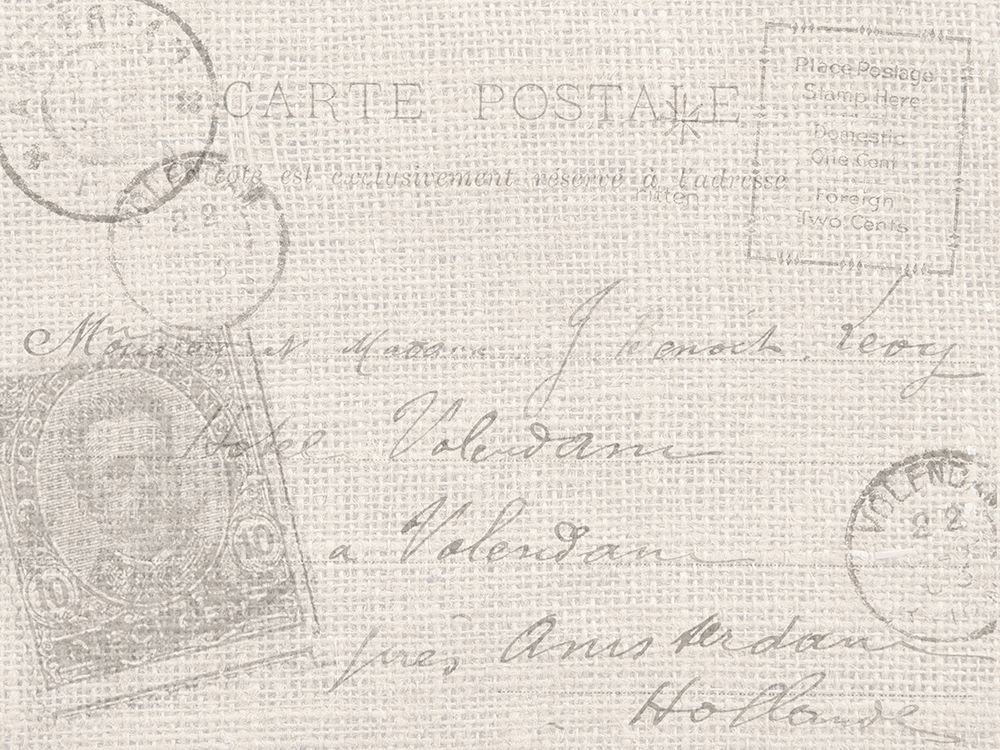 AMSTERDAM
CARTE POSTALE
Place Postage
Stamp Here
Domestic
One Cent
Foreign
Two Cents
côté est exclusivement réservé à l'adresse
VOLENDAM
22
Monsieur et Madame J Benoit Levy
POSTES
Hotel Volendam
VOLENDAM
22
10
10
a Volendam
près Amsterdam
Hollande